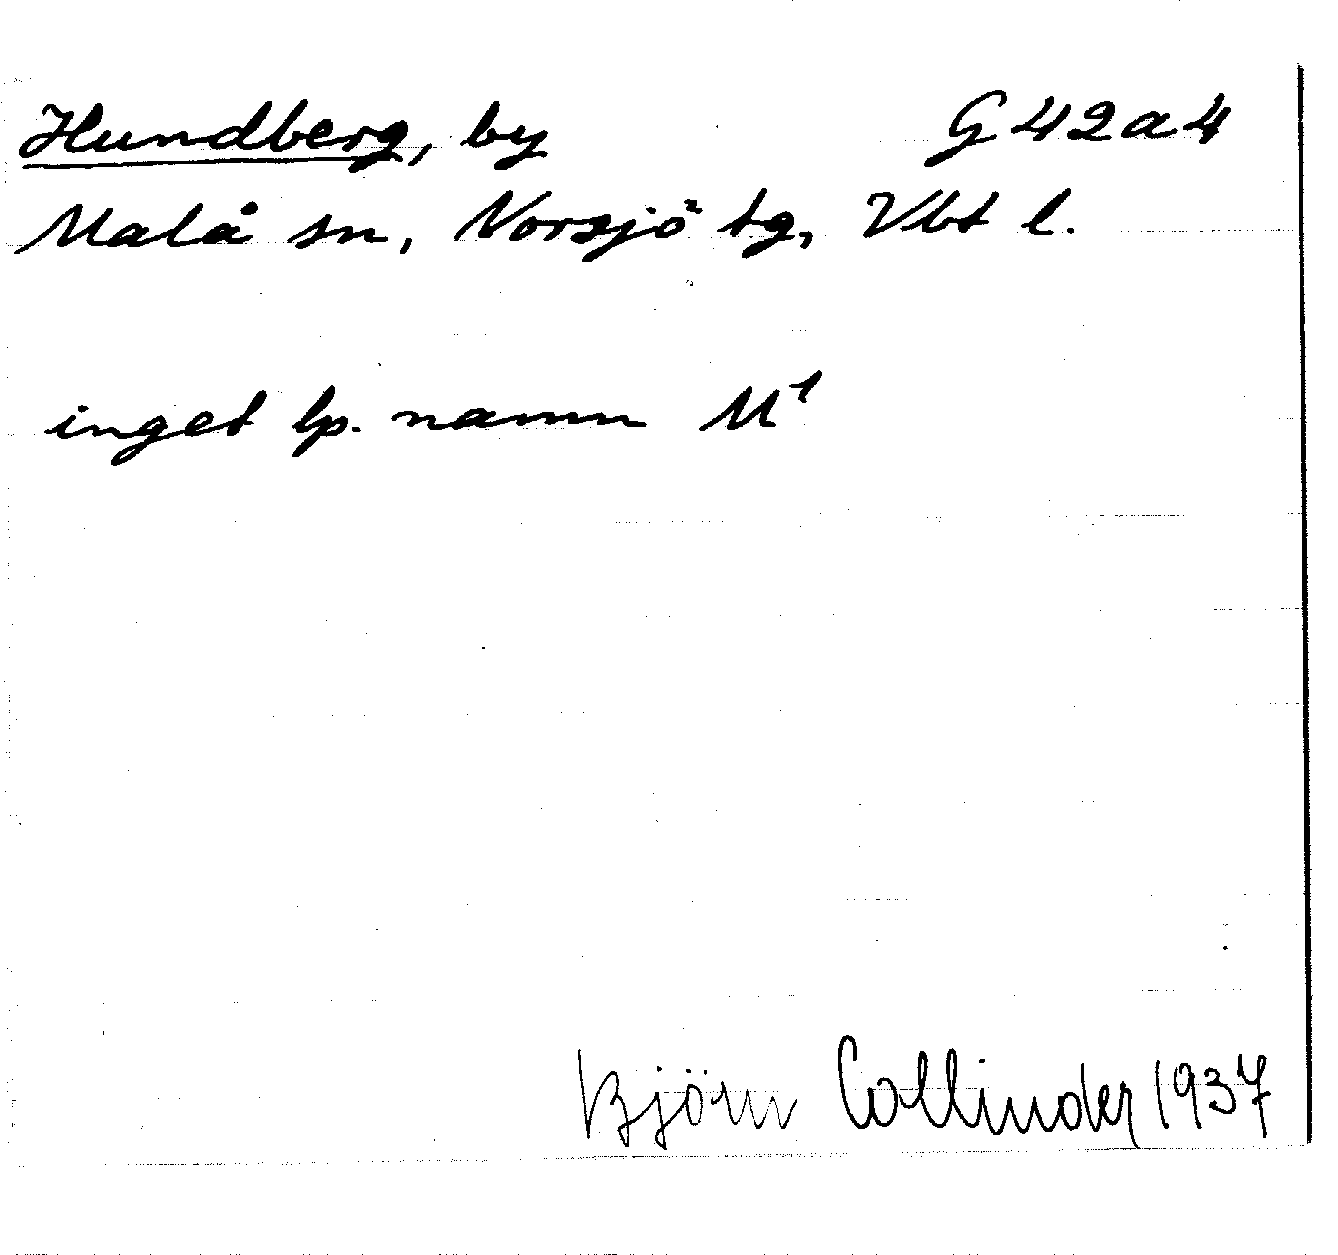 Hundberg, by G42a4
Malå sn, Norsjö tg, Vbt l.
inget lp. namn M¹
Björn Collinder 1937